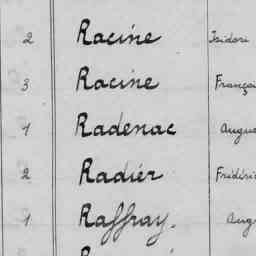 2 Racine Isidore
3 Racine Françoi
1 Radenac Augus
2 Radiér Frédéric
1 Raffray. Aug